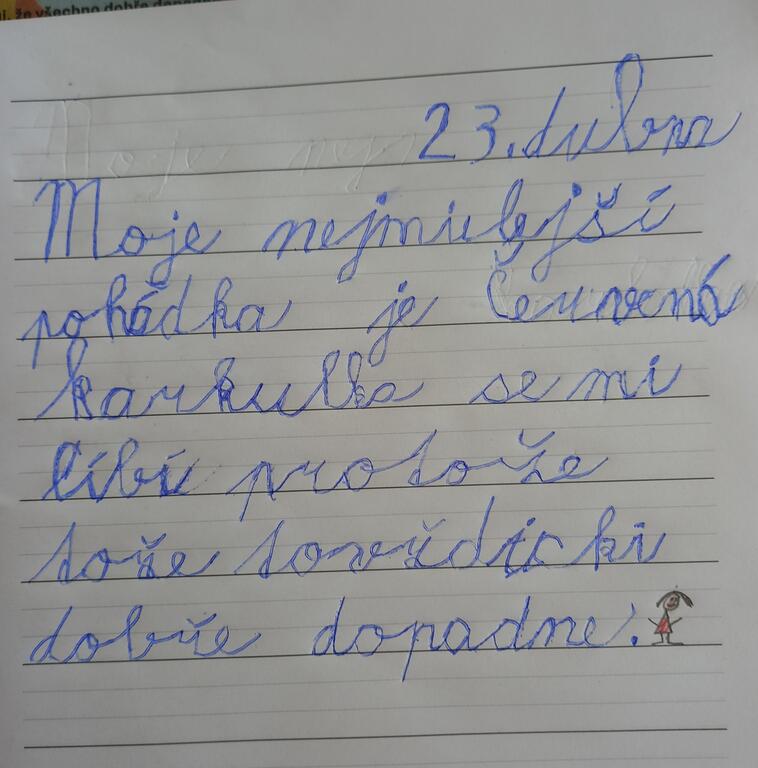 že všechno dobře
23. dubna
Moje nejmilejší
pohádka je Červená
karkulka se mi
líbí protože
tože tovždicki
dobře dopadne.